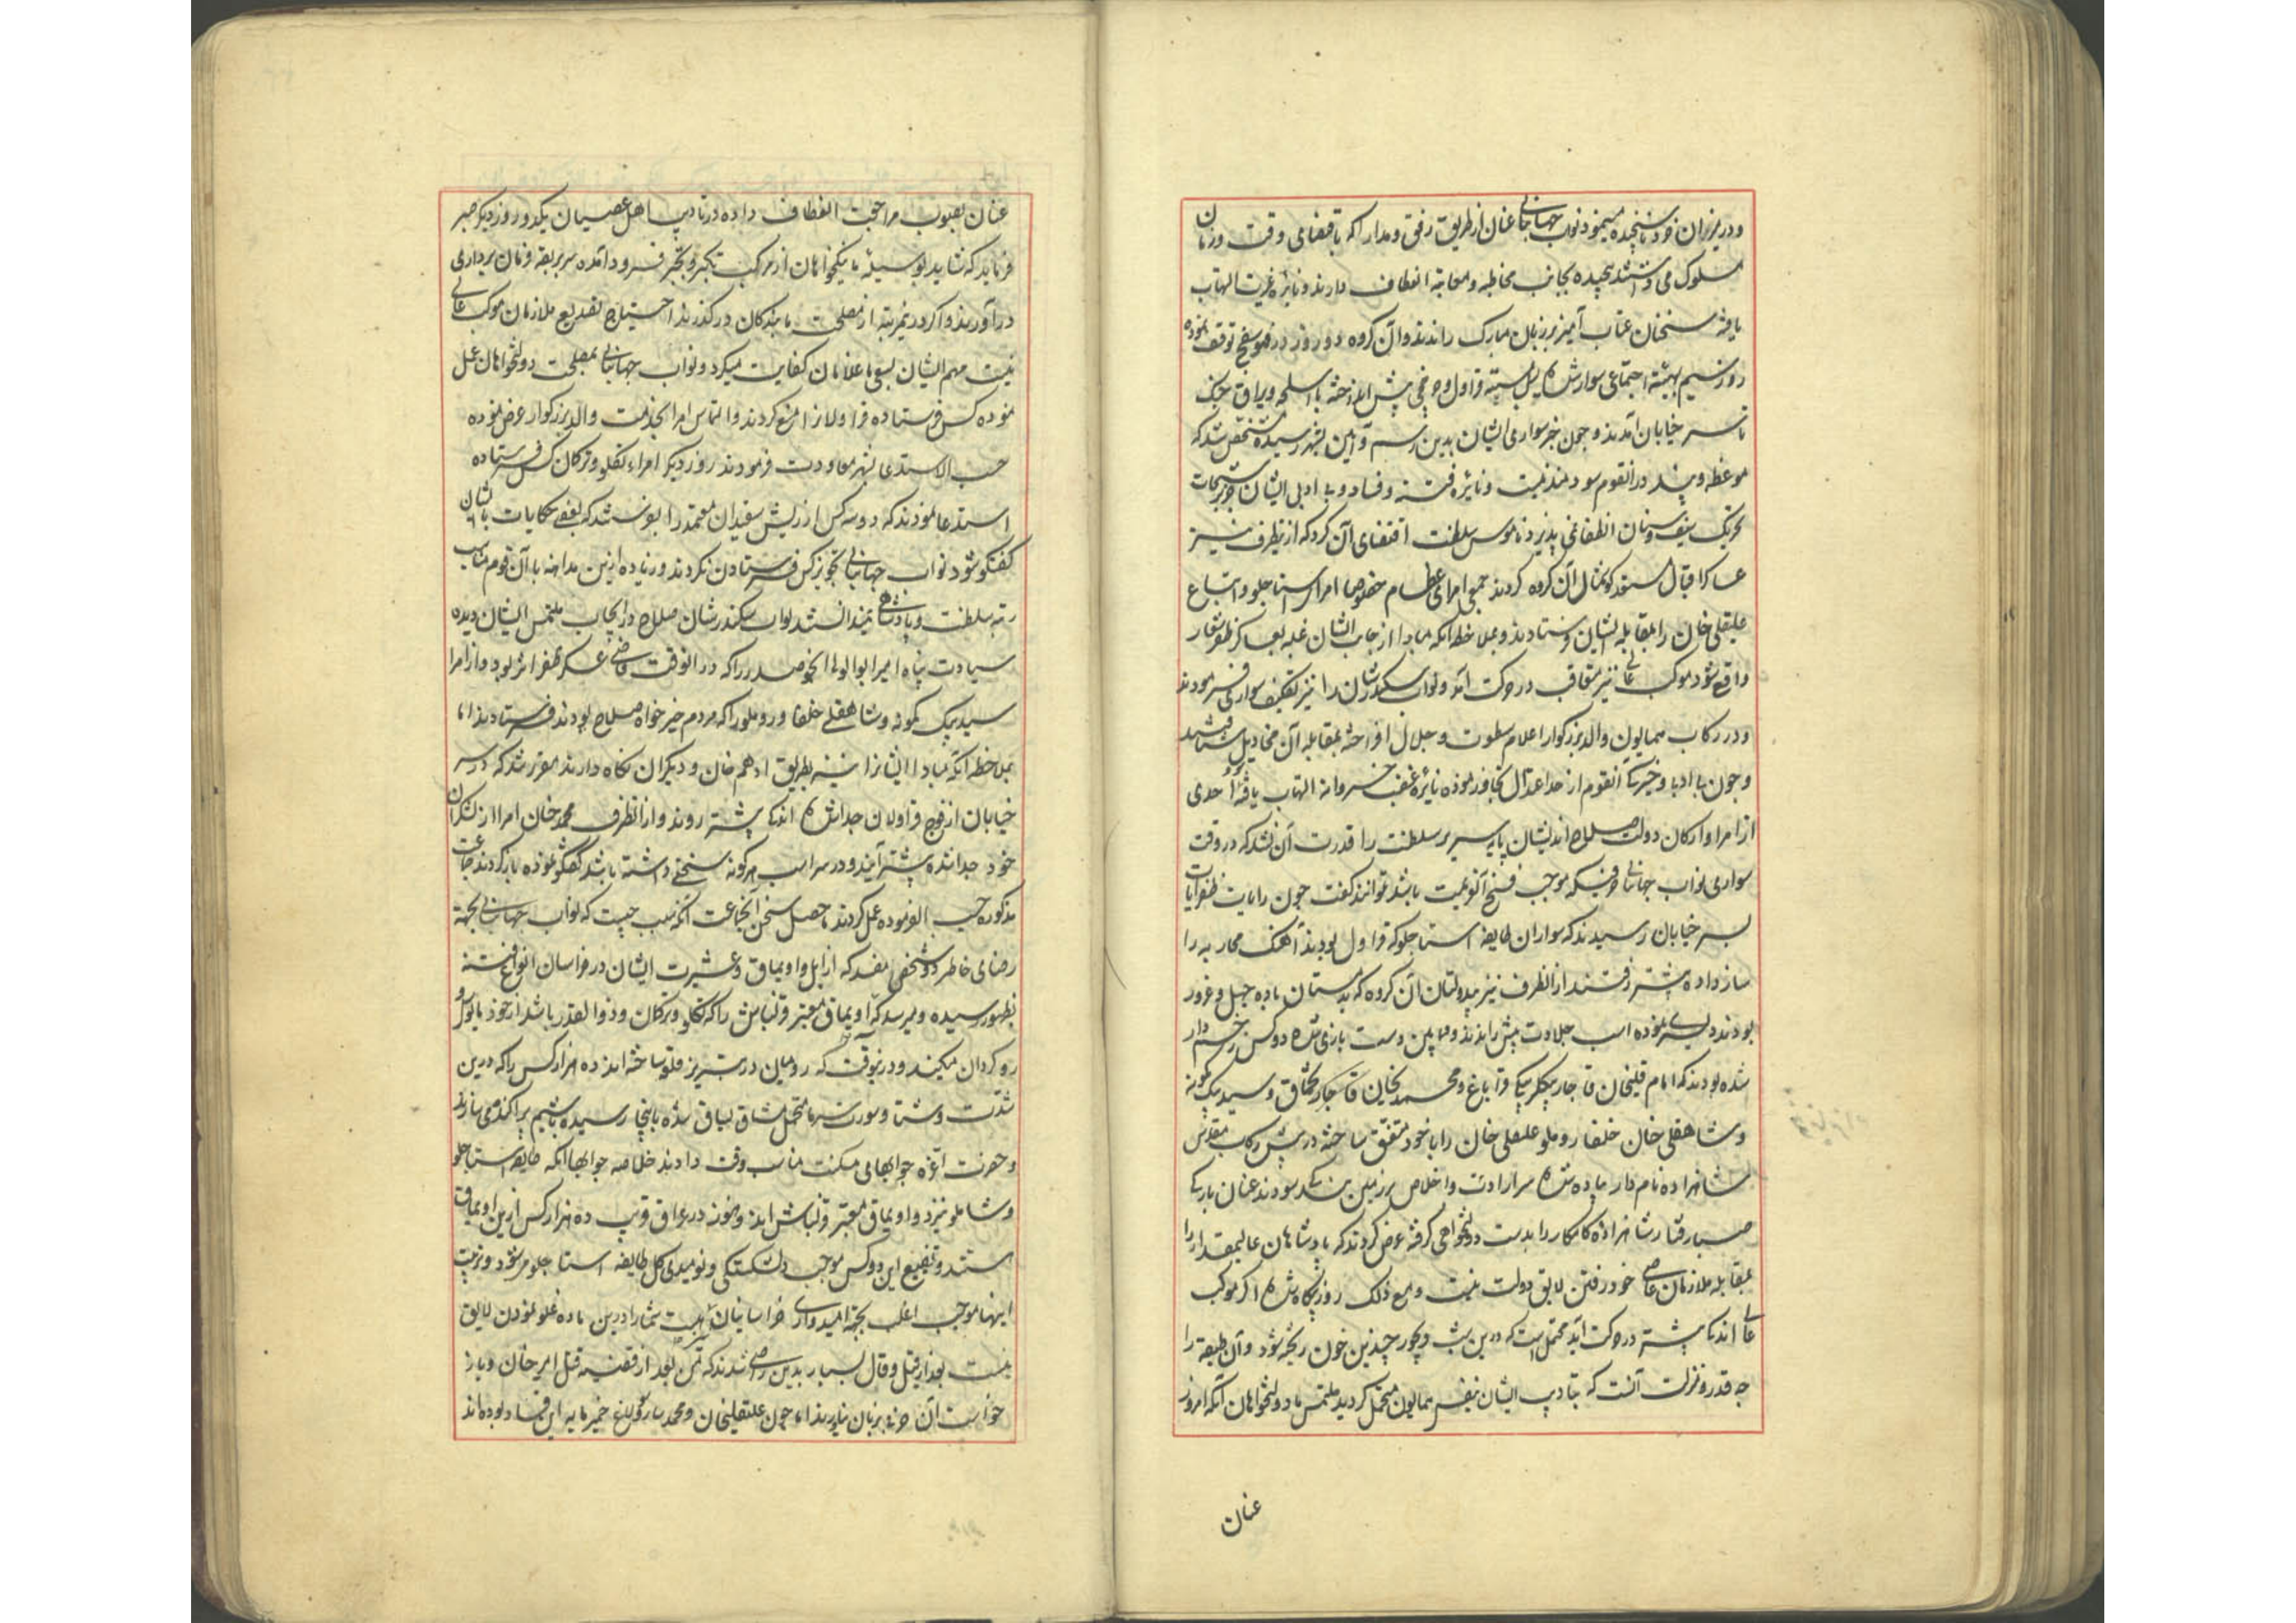 و در میزان خرد ناسنجیده مینمود نواب جهانبانی عنان از طریق رفق و مدارا که باقتضای وقت و زمان
سلوک می داشتند پیچیده بجانب مخاطبه و معاتبه انعطاف دارند و نایره غیرت التهاب
یافته سخنان عتاب آمیز بر زبان مبارک راندند و آن کروه دو روز در توقف نموده
روز سیم بهیئة اجتماعی سوار شده بسته قراول و پیش انداخته با اسلحه و یراق جنک
تا سر خیابان آمدند و چون خبر سواری ایشان بدین رسم و آیین بشهر رسیده مشخص شد که
موعظه و پند در آنقوم سودمند نیست و نایره فتنه و فساد و بی ادبی ایشان جز برشحات
سیف و سنان انطفا نمی پذیرد ناموس سلطنت اقتضای آن کرد که ازینطرف نیز
عساکر اقبال مستعد کوشمال آن کروه کردند جمعی امرای عظام خصوصا امرای استاجلو و اتباع
علیقلی خان را بمقابله ایشان فرستادند و بملاحظه آنکه مبادا از جانب ایشان غلبه بعساکر ظفر شعار
واقع شود موکب عالی نیز متعاقب در حرکت آمد و نواب سکندر شان را نیز تکلیف سواری فرمودند
و در رکاب همایون والد بزرکوار اعلام سطوت و جلال افراخته بمقابله آن مخاذیل شتافتند
و چون بی ادبی و خیرکی آنقوم از حد اعتدال تجاوز نموده نایره غضب خسروانه التهاب یافته احدی
از امرا و ارکان دولت و صلاح اندیشان پایه سریر سلطنت را قدرت آن نشد که در وقت
سواری نواب جهانبانی حرفی که موجب فسخ آن عزیمت باشد توانند کفت چون رایات ظفر آیات
بسر خیابان رسیدند که سواران طایفه استاجلو که قراول بودند آهنک محاربه را
ساز داده پیشتر رفتند از آنطرف نیز بیدولتان آن کروه که بدمستان باده جهل و غرور
بودند دلیری نموده اسب جلادت پیش راندند و مابین دست بازی شده دو کس زخم دار
شده بودند که امام قلیخان قاجار بیکلربیکی قراباغ و محمد خان قاجار و سید بیک کمونه
و شاهقلی خان خلفا روملو علیقلی خان را با خود متفق ساخته در پیش رکاب مقدس
شاهزاده نام دار پیاده شده سر ارادت و اخلاص بر زمین بندکی سودند عنان بارکی
صبا رفتار شاهزاده کامکار را بدست دولتخواهی کرفته عرض کردند که پادشاهان عالیمقدار را
بمقابله ملازمان عاصی خود رفتن لایق دولت نیست و مع ذلک روز بیکاه شده اکر موکب
عالی اندکی پیشتر در حرکت آید محتمل است که درین شب دیجور چندین خون ریخته شود و آن طبقه را
چه قدر و منزلت آنست که بتادیب ایشان بنفس همایون متحمل کردید ملتمس ما دولتخواهان آنکه امروز
عنان
عنان بصوب مراجعت انعطاف داده در تادیب اهل عصیان یکدو روز دیکر صبر
فرماید که شاید بوسیله ما نیکخواهان از مرکب تکبر و تجبر فرود آمده سر بربقه فرمان برداری
در آورند و اکر درین مرتبه از مصلحت ما بندکان در کذرند احتیاج تصدیع ملازمان موکب عالی
نیست مهم ایشان بسعی ما غلامان کفایت میکرد و نواب جهانبانی بمصلحت دولتخواهان عمل
نموده کس فرستاده قراولانرا منع کردند و التماس امرا بخدمت والد بزرکوار عرض نموده
حسب الاستدعا بشهر معاودت فرمودند روز دیکر امراء تکلو و ترکمان کس فرستاده
استدعا نمودند که دو سه کس از ریش سفیدان معتمد را بفرستند که بعضی حکایات بایشان
کفتکو شود نواب جهانبانی تجویز کس فرستادن نکردند و زیاده ازین مداهنه با آن قوم مناسب
رتبه سلطنت و پادشاهی نمیدانستند نواب سکندر شان صلاح در ایجاب ملتمس ایشان دیده
سیادت پناه امیر ابوالولی انجو صدر را که در آنوقت قاضی عسکر ظفر اثر بود و از امرا
سید بیک کمونه و شاهقلی خلفا روملو را که مردم خیر خواه صلاح بودند فرستادند اما
بملاحظه آنکه مبادا ایشانرا نیز بطریق ادهم خان و دیکران نکاه دارند مقرر شد که در سر
خیابان از فوج قراولان جدا شده اندکی پیشتر روند و از آنطرف محمد خان امرا از لشکر
خود جدا شده پیشتر آیند و در سر اسب هر کونه سخنی داشته باشند کفتکو نموده باز کردند جماعت
مذکوره حسب الفرموده عمل کردند ماحصل سخن آنجماعت آنکه سبب چیست که نواب جهانبانی بجهة
رضای خاطر دو شخص مفسد که از ایل و اویماق و عشیرت ایشان در خراسان انواع فتنه
بظهور رسیده و میرسد که اویماق معتبر قزلباش را که تکلو و ترکمان و ذوالقدر باشد از خود مایوس و
رو کردان میکند و درین وقت که رومیان در تبریز قلعه ساخته اند ده هزار کس را که درین
شدت شتا و سورت سرما متحمل مشاق شده باینجا رسیده باشیم پراکنده می سازند
و حضرت اعزه جوابهای مسکت مناسب وقت دادند خلاصه جوابها آنکه طایفه استاجلو
و شاملو نیز دو اویماق معتبر قزلباش اند و هنوز در عراق قریب ده هزار کس ازین اویماق
هستند و تضییع این دو کس موجب دلشکستکی و نومیدی کل طایفه استاجلو میشود و تربیت
اینها موجب اغلب بجهة امیدواری خراسانیان است شما را درین ماده غلو نمودن لایق
نیست بعد از قیل و قال بسیار بدین راضی شدند که من بعد از قضیه قتل امیر خان و باز
خواست آن حرف بر زبان نیاورند اما چون علیقلیخان و محمد ساروسولاغ خمیر مایه این فساد بوده اند